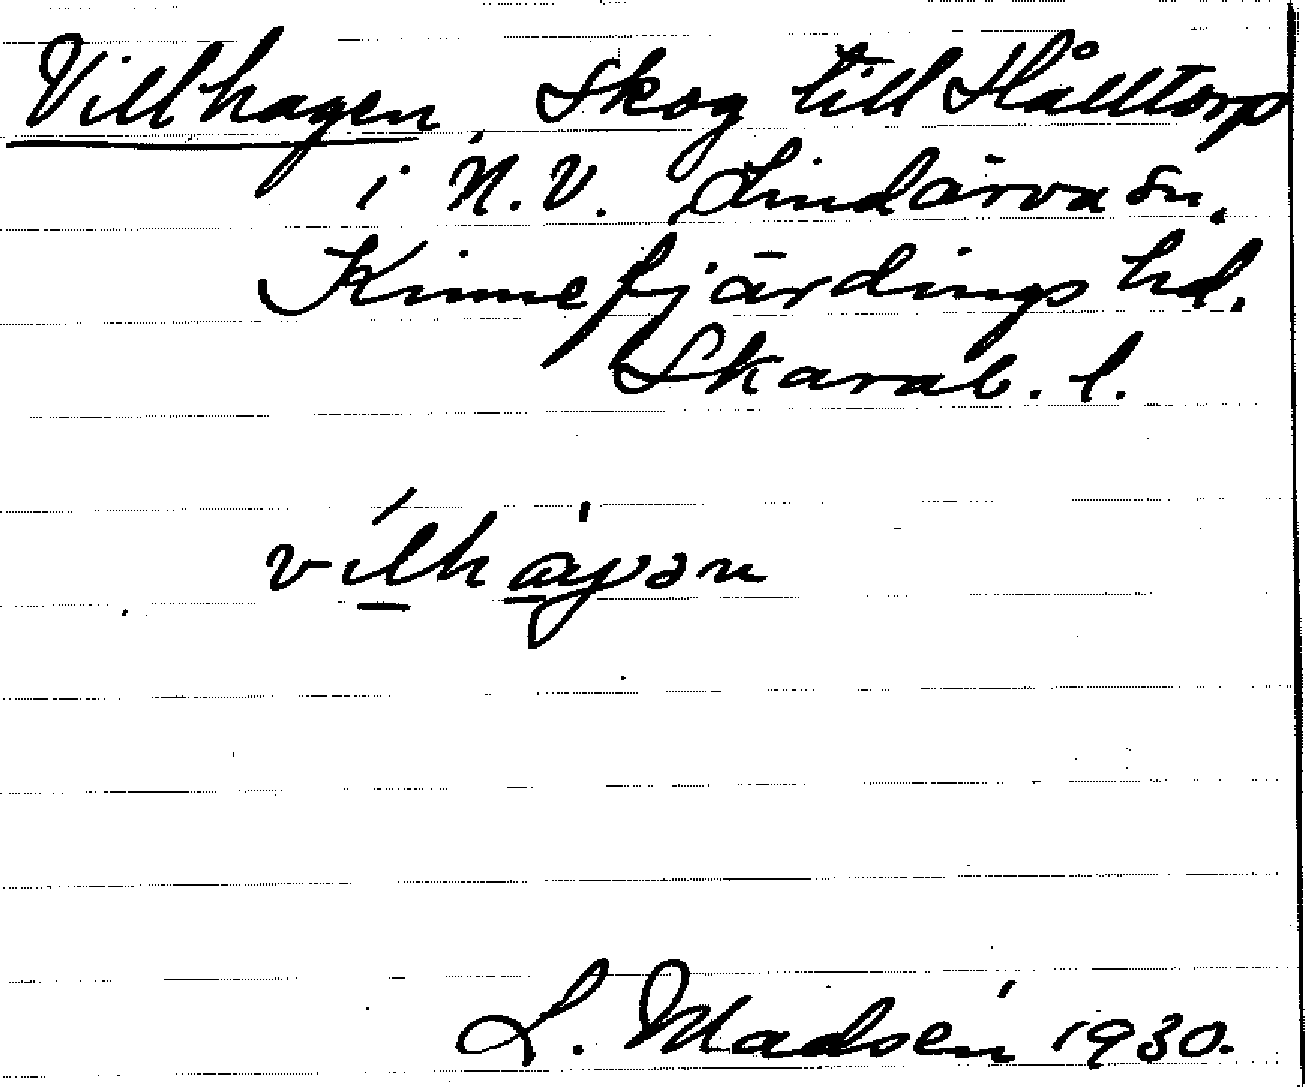 Villhagen, Skog till Hålltorp
i N.V. Lindärva sn.
Kinnefjärdings hd.
Skarab. l.
vílhàγən
L. Madsén 1930.